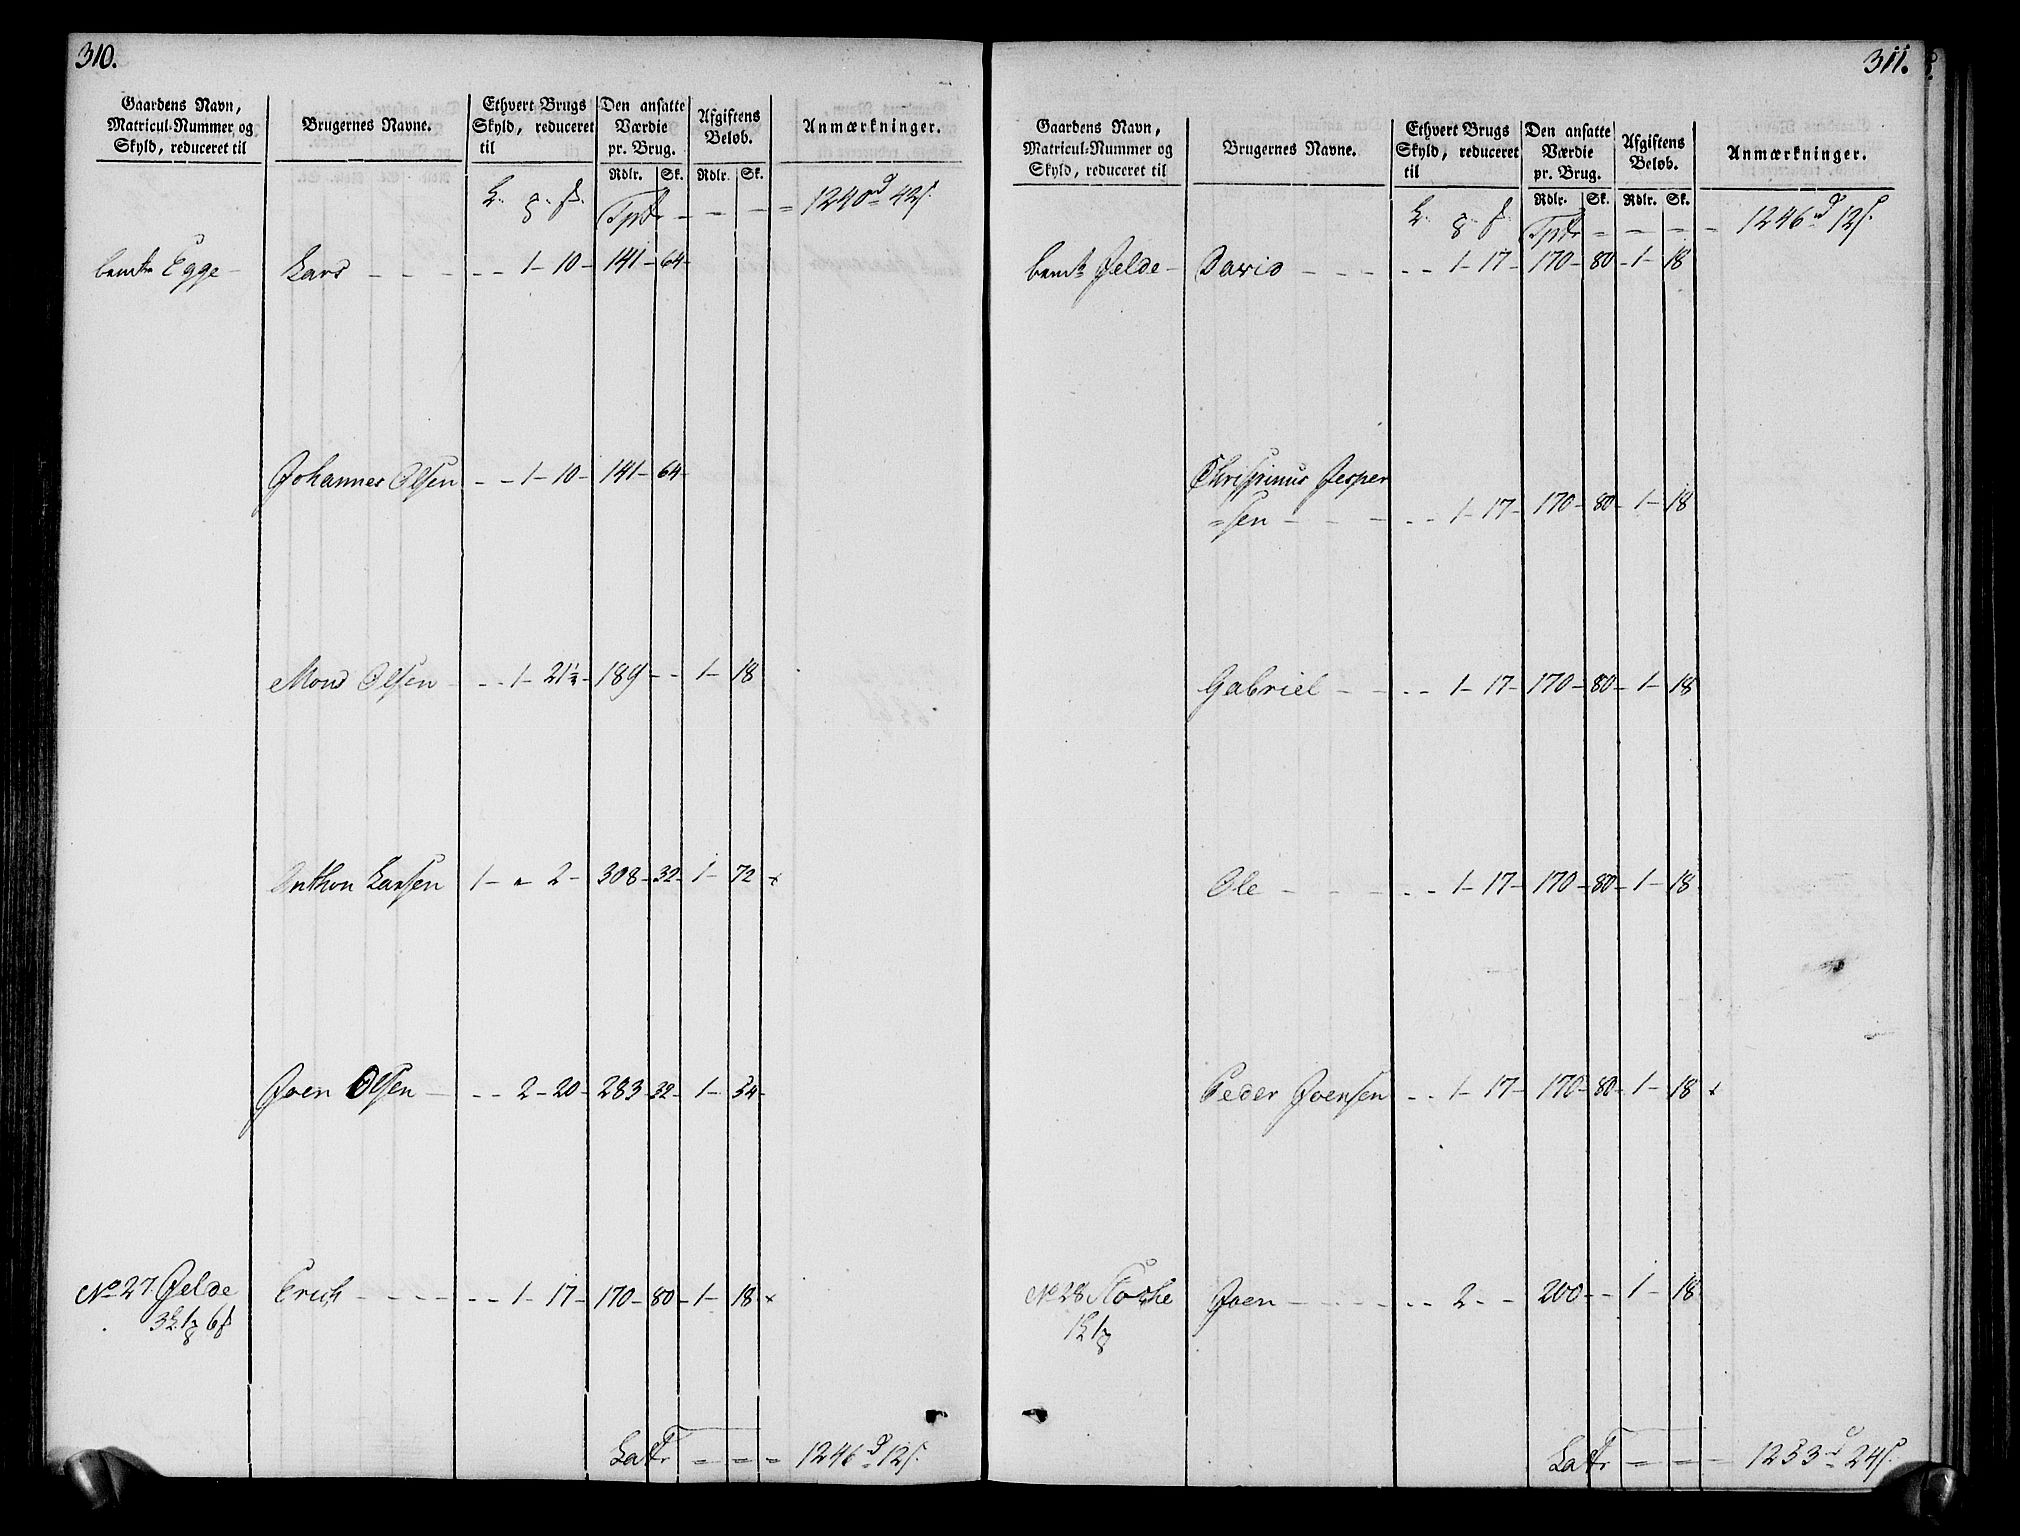 310.
Gaardens Navn, Matricul-Nummer, og Skyld, reduceret til | Brugernes Navne. | Ethvert Brugs Skyld, reduceret til | Den ansatte Værdie pr. Brug. | Afgiftens Beløb. | Anmærkninger.
Rdlr. | Sk. | Rdlr. | Sk.
Tpt - - - = 1240 rd 42 s.
bemte Egge - Lars - - - - - 1 - 10 - 141 - 64 -
Johannes Olsen - - 1 - 10 - 141 - 64 -
Mons Olsen - - - 1 - 21 1/2 - 189 - - 1 - 18
Anthon Larsen 1 - „ 2 - 308 - 32 - 1 - 72 x
Joen Olsen - - - 2 - 20 - 283 - 32 - 1 - 54 -
No 27. Jelde Erich - - - - - - 1 - 17 - 170 - 80 - 1 - 18 x
3 L. 1 8 6 s
Latr - - = 1246 d 12 s.
311.
Gaardens Navn, Matricul-Nummer og Skyld, reduceret til | Brugernes Navne. | Ethvert Brugs Skyld, reduceret til | Den ansatte Værdie pr. Brug. | Afgiftens Beløb. | Anmærkninger.
Rdlr. | Sk. | Rdlr. | Sk.
Tptr - - - - - 1246 d 12 s.
bemte Jelde - David - - - - - - 1 - 17 - 170 - 80 - 1 - 18
Christinus Jesper
=sen - - - - - 1 - 17 - 170 - 80 - 1 - 18
Gabriel - - - - 1 - 17 - 170 - 80 - 1 - 18
Ole - - - - - 1 - 17 - 170 - 80 - 1 - 18
Peder Joensen - - 1 - 17 - 170 - 80 - 1 - 18 x
No 28 Joen - - - - - - 2 - - 200 - - 1 - 18
Latr = - - - 1253 d 24 s.